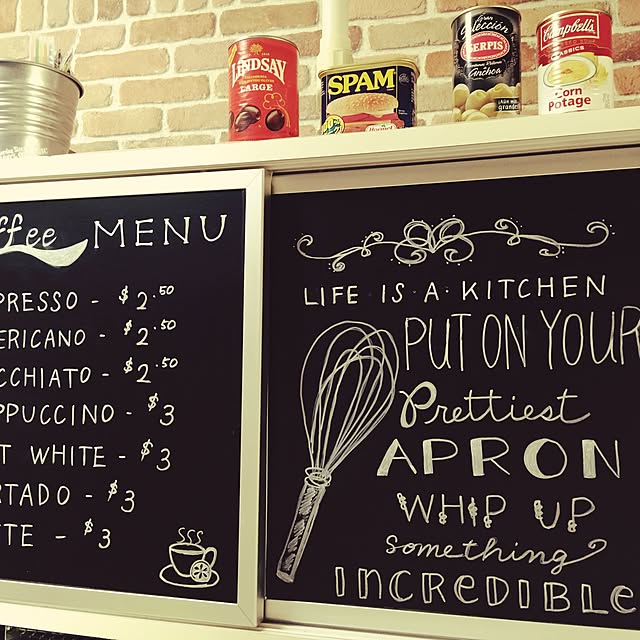 LINDSAY
LARGE
SPAM
Hormel
Gran
Colección
SERPIS
Anchoa
Campbell's
CLASSICS
Corn
Potage
ffee MENU
PRESSO - $2.50
ERICANO - $2.50
CCHIATO - $2.50
PPUCCINO - $3
T WHITE - $3
RTADO - $3
TTE - $3
LIFE IS · A · KITCHEN
PUT ON YOUR
Prettiest
APRON
WHIP UP
something
INCREDIBLE